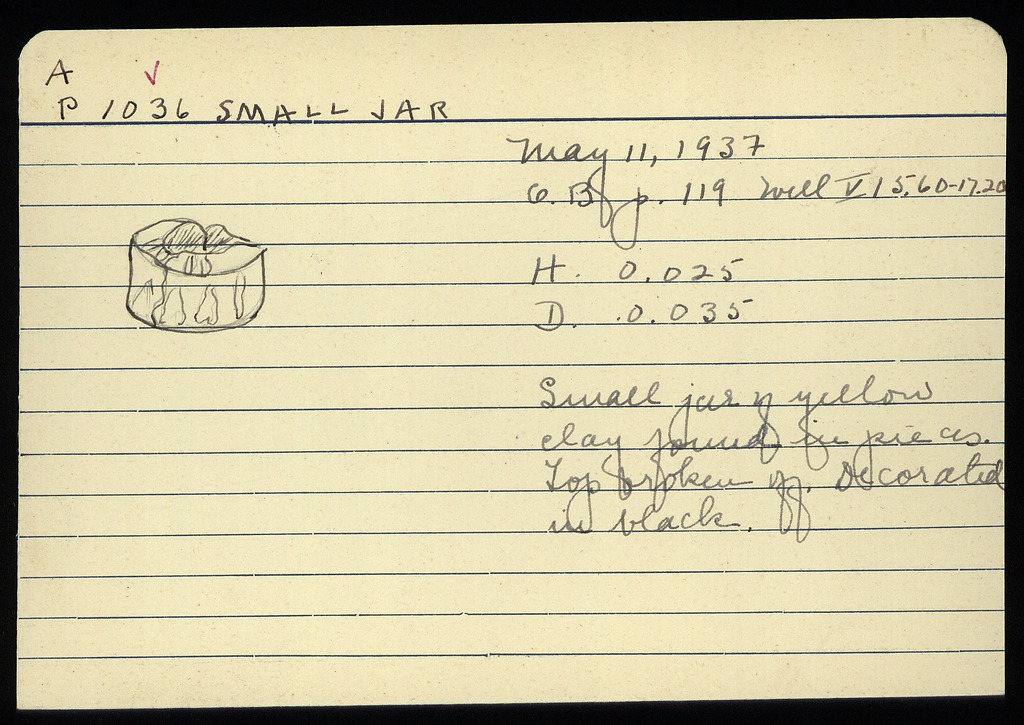 A √
P 1036 SMALL JAR
May 11, 1937
G. B p. 119 Well V 15.60-17.20
H. 0.025
D. .0.035
Small jar of yellow
clay found in pieces.
Top broken off. Decorated
in black.